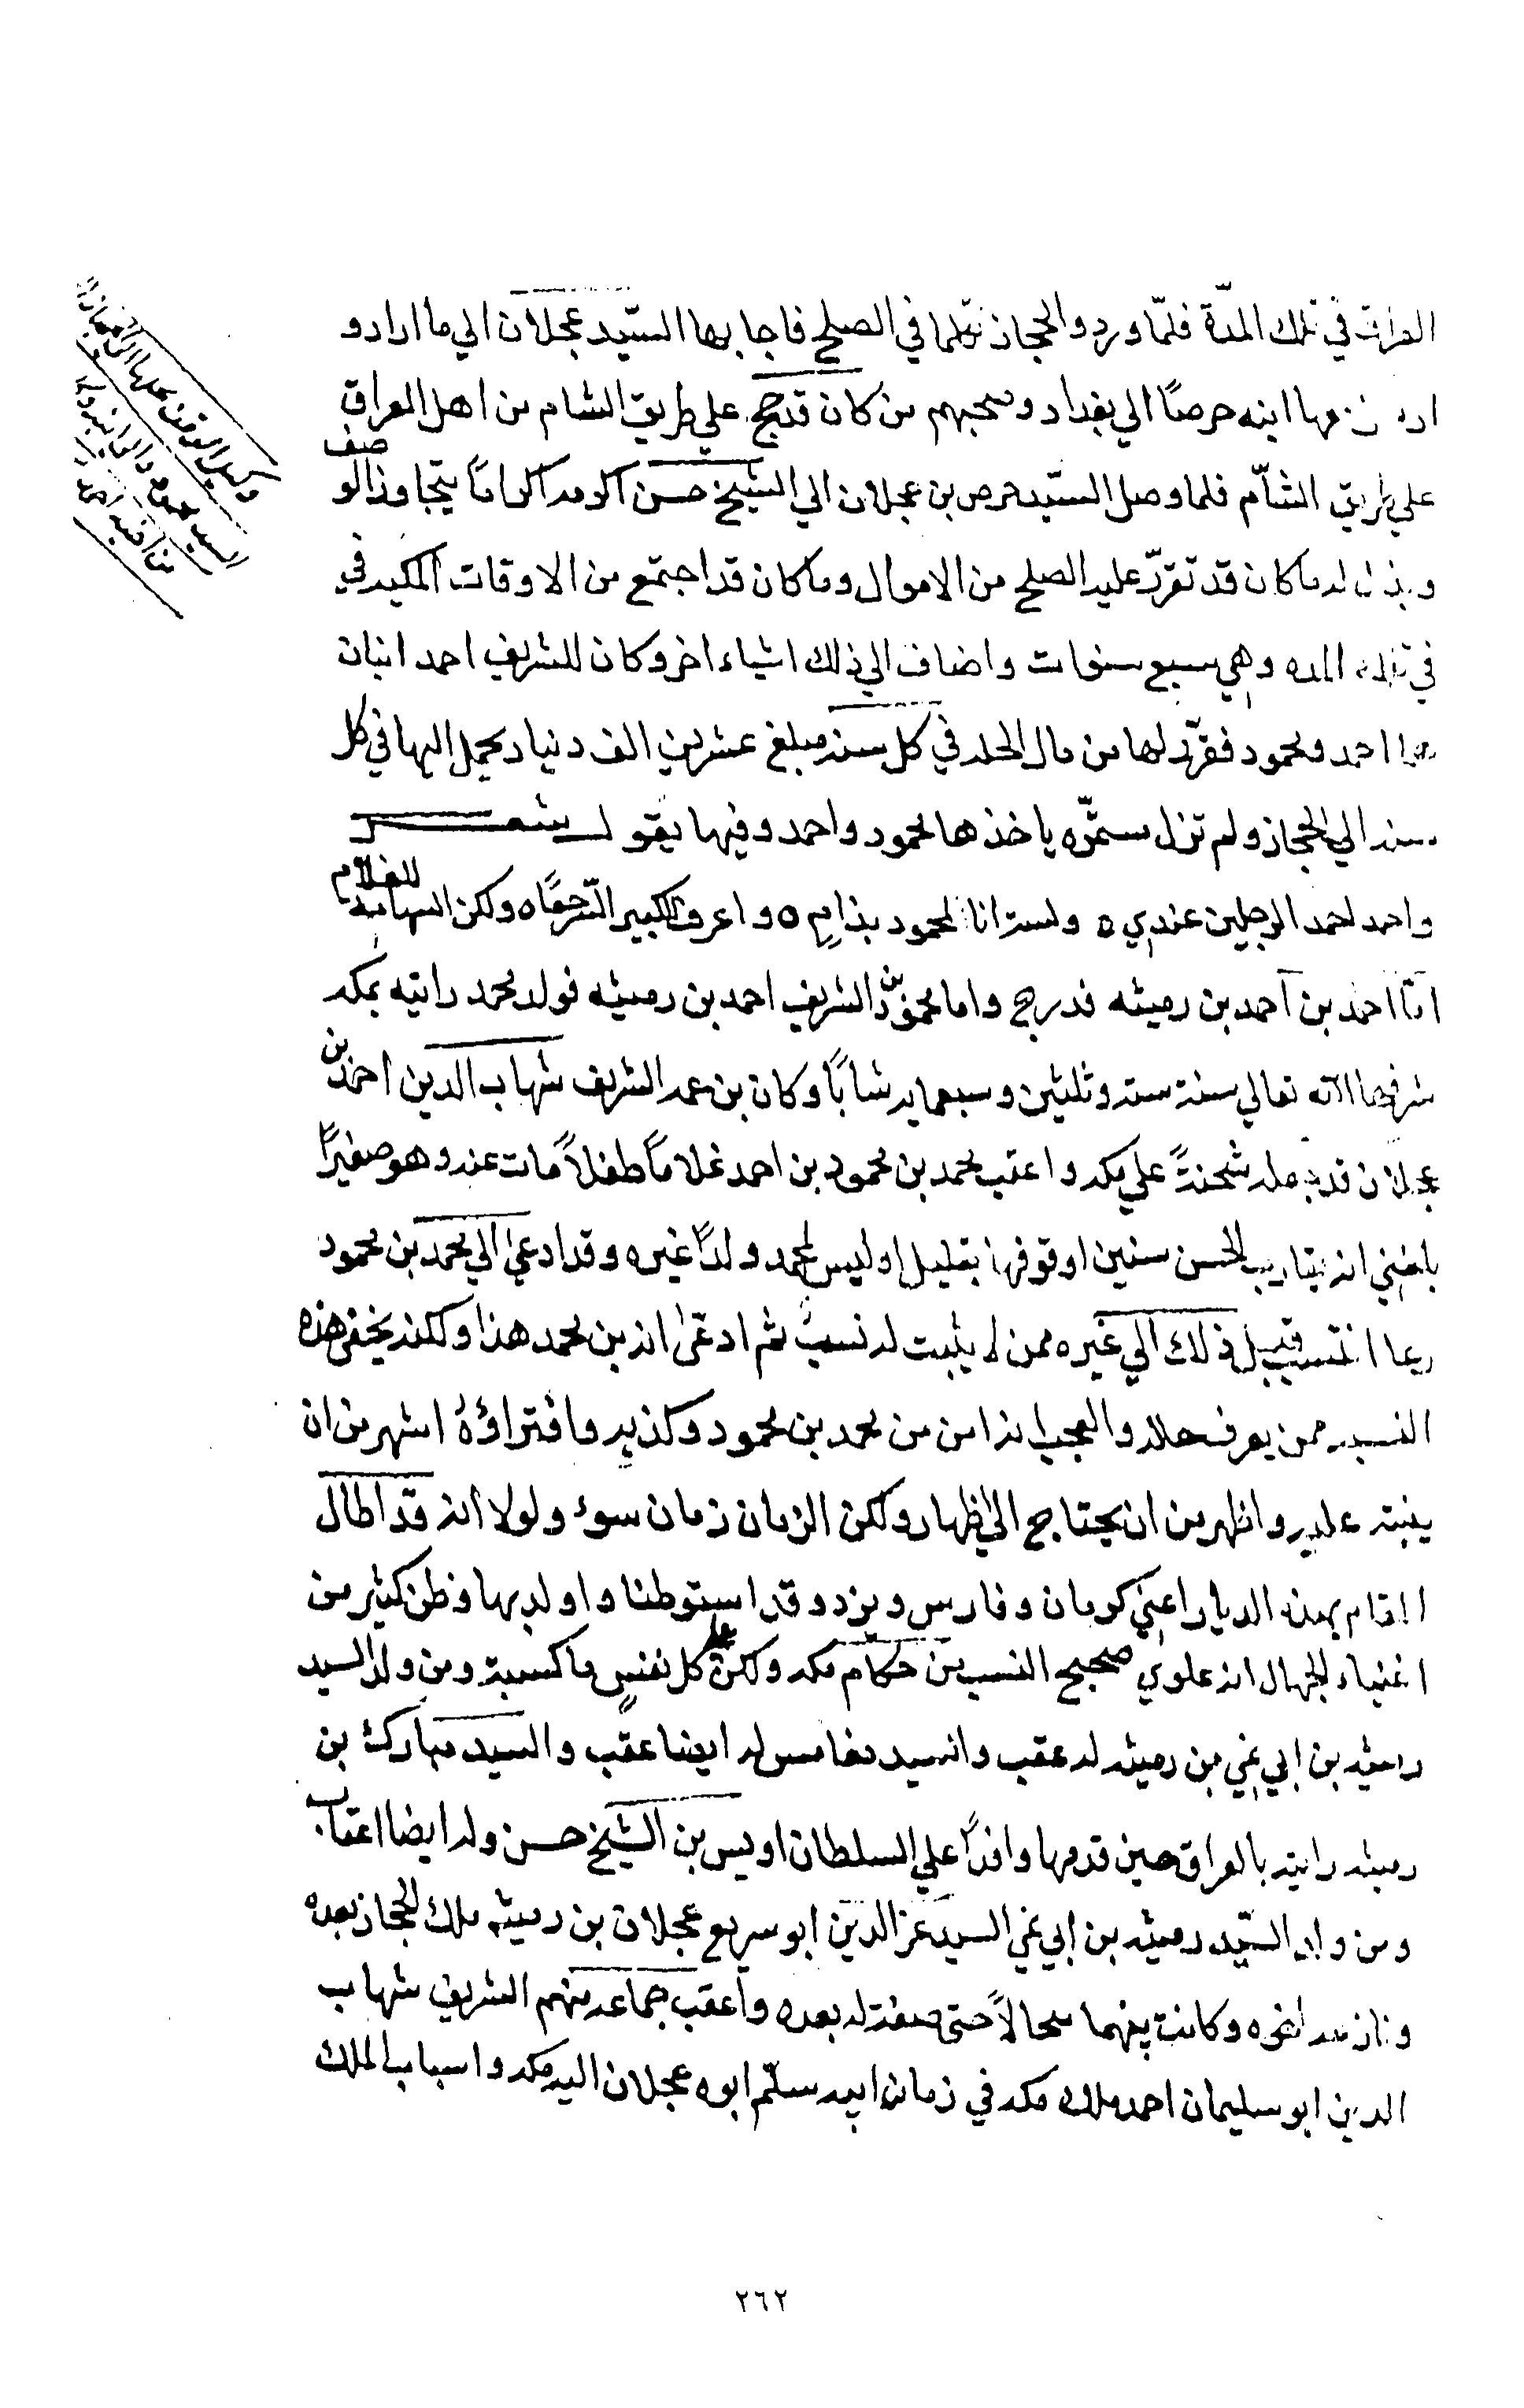 العراق في تلك المدّة فلمّا ورد والحجاز تكلما في الصلح فاجابهما السّيد عجلان الي ما ارادو
معهما ابنه حرصًا الي بغداد وصحبهم من كان قد حج علي طريق الشام من اهل العراق
علي طريق الشأم فلما وصل السّيد حرص بن عجلان الي الشيخ حسن اكرمه اكرامًا يتجاوز الوصف
وبذل له ما كان قد تقرّر عليه الصلح من الاموال وما كان قد اجتمع من الاوقات المكيه في
في تلك المده وهي سبع سنوات واضاف الي ذلك اشياء اخر وكان للشريف احمد ابنان
هما احمد ومحمود فقرّر لهما من مال الحله في كل سنه مبلغ عشرين الف دنيار يحمل اليهما في كل
سنه الي الحجاز ولم تزل مستمرّه ياخذها محمود واحمد وفيهما يقول شعر
واحمد احمد الرجلين عندي ٥ ولست انا لمحمود بذامٍ ٥ واعرف للكبير السّن حقًا ٥ ولكن الشهامة للغلام
امّا احمد بن احمد بن رميثه فدرج واما محمود بن الشريف احمد بن رميثه فولد محمد رايته بمكه
شرفها الله تعالي سنة ستة وثلثين وسبعمايه شابًا وكان بن عمه الشريف شهاب الدين احمد بن
عجلان قد جعله شحنةً علي مكه واعقب محمد بن محمود بن احمد غلامًا طفلاً مات عنه وهو صغيرًا
بلغني انه يقارب الخمس سنين او فوقها بقليل او ليس لمحمد ولدًا غيره وقد ادعيٰ الي محمد بن محمود
ربما انتسب قبل ذلك الي غيره ممن لا يثبت له نسب ثم ادعّىٰ انه بن محمد هذا ولكنه يخفي هذه
النسبه ممن يعرف حاله والعجب انه اسن من محمد بن محمود وكذبه وافتراؤهُ اشهر من ان
ينبه عليه واظهر من ان يحتاج الي اظهار ولكن الزمان زمان سوء ولولا انه قد اطال
المقام بهذه الديار اعني كرمان وفارس ويزد وقد استوطنا واولد بها وظن كثير من
اغنياء الجهال انه علوي صحيح النسب من حكام مكه ولكن علي كل نفسٍ ما كسبة ومن ولد السيد
رميثه بن ابي نمي بن رميثه له عقب والسيد مغامس له ايضا عقب والسيد مبارك بن
رميثه رايته بالعراق حين قدمها وافدًا علي السلطان اويس بن الشيخ حسن وله ايضا اعقاب
ومن ولد السّيد رميثه بن ابي نمي السيد عز الدين ابو سريع عجلان بن رميثه ملك الحجاز بعده
ونازعه اخوه وكانت بينهما سجالاً حتى صفت له بعده واعقب جماعه منهم الشريف شهاب
الدين ابو سليمان احمد ملك مكه في زمان ابيه سلّم ابوه عجلان اليه مكه واسباب الملك
٢٦٢